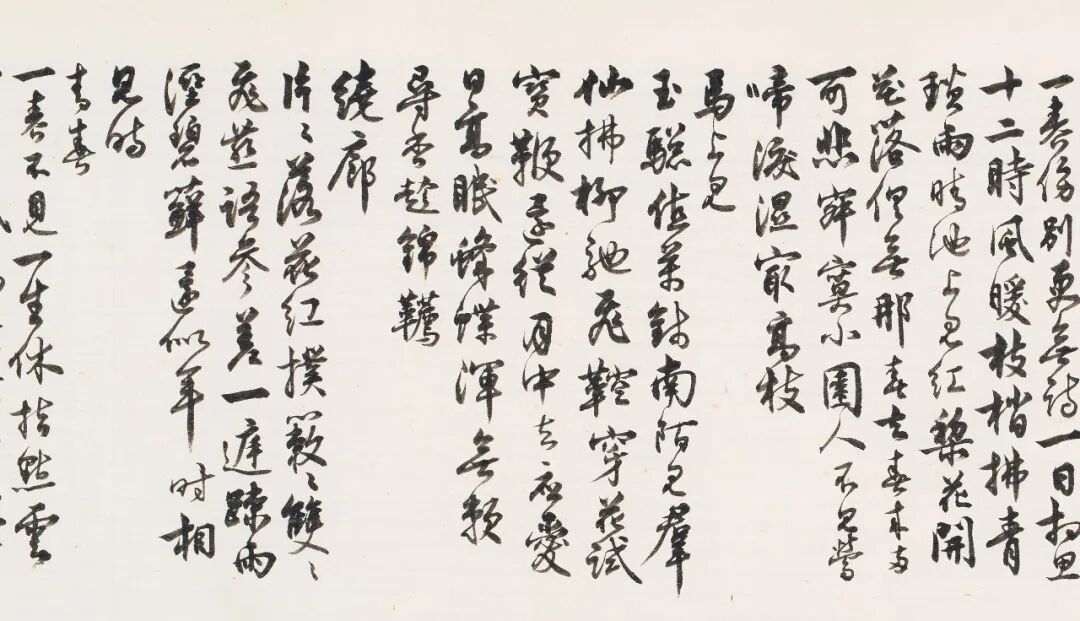 一春傷別更無詩一日相思
十二時風暖枝梢拂青
瑣雨晴池上見紅梨花開
花落但無那春去春來兩
可悲寂寞小園人不見鶯
啼淚濕最高枝
馬上見
玉驄 南陌見羣
仙拂柳馳飛鞚穿花試
寶鞭還從月中去應愛
日高眠蜂蝶渾無賴
尋香趁錦韉
繞廊
片〻落花紅撲簌〻雙〻
飛燕語參差一庭疎雨
溼碧蘚還似年時相
見時
青春
一春不見一生休指點雲